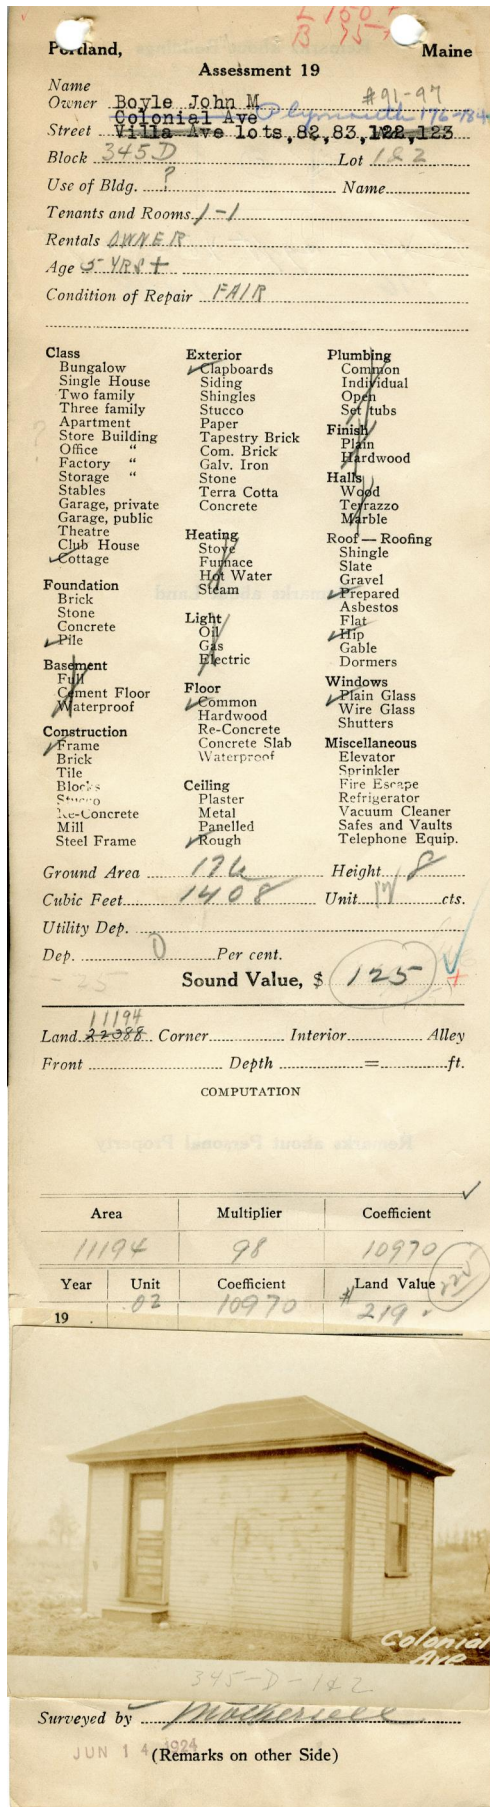 L 150 +
B 75 +
Portland, Maine
Assessment 19
Name
Owner Boyle John M #91-97
Colonial Ave Plymouth 176-184
Street Villa Ave lots,82,83,122,123
Block 345D Lot 1&2
Use of Bldg. ? Name
Tenants and Rooms 1-1
Rentals OWNER
Age 5 YRS +
Condition of Repair FAIR
Class
Bungalow
Single House
Two family
Three family
Apartment
Store Building
Office "
Factory "
Storage "
Stables
Garage, private
Garage, public
Theatre
Club House
Cottage
Foundation
Brick
Stone
Concrete
Pile
Basement
Full
Cement Floor
Waterproof
Construction
Frame
Brick
Tile
Blocks
Stucco
Re-Concrete
Mill
Steel Frame
Exterior
Clapboards
Siding
Shingles
Stucco
Paper
Tapestry Brick
Com. Brick
Galv. Iron
Stone
Terra Cotta
Concrete
Heating
Stove
Furnace
Hot Water
Steam
Light
Oil
Gas
Electric
Floor
Common
Hardwood
Re-Concrete
Concrete Slab
Waterproof
Ceiling
Plaster
Metal
Panelled
Rough
Plumbing
Common
Individual
Open
Set tubs
Finish
Plain
Hardwood
Halls
Wood
Terrazzo
Marble
Roof — Roofing
Shingle
Slate
Gravel
Prepared
Asbestos
Flat
Hip
Gable
Dormers
Windows
Plain Glass
Wire Glass
Shutters
Miscellaneous
Elevator
Sprinkler
Fire Escape
Refrigerator
Vacuum Cleaner
Safes and Vaults
Telephone Equip.
Ground Area 176 Height 8
Cubic Feet 1408 Unit cts.
Utility Dep.
Dep. 0 Per cent.
Sound Value, $ 125
11194
Land 22388 Corner Interior Alley
Front Depth = ft.
COMPUTATION
Area Multiplier Coefficient
11194 98 10970
Year Unit Coefficient Land Value
19 .02 10970 $ 219
Colonial
Ave
345-D-1&2
Surveyed by
JUN 14 1924
(Remarks on other Side)